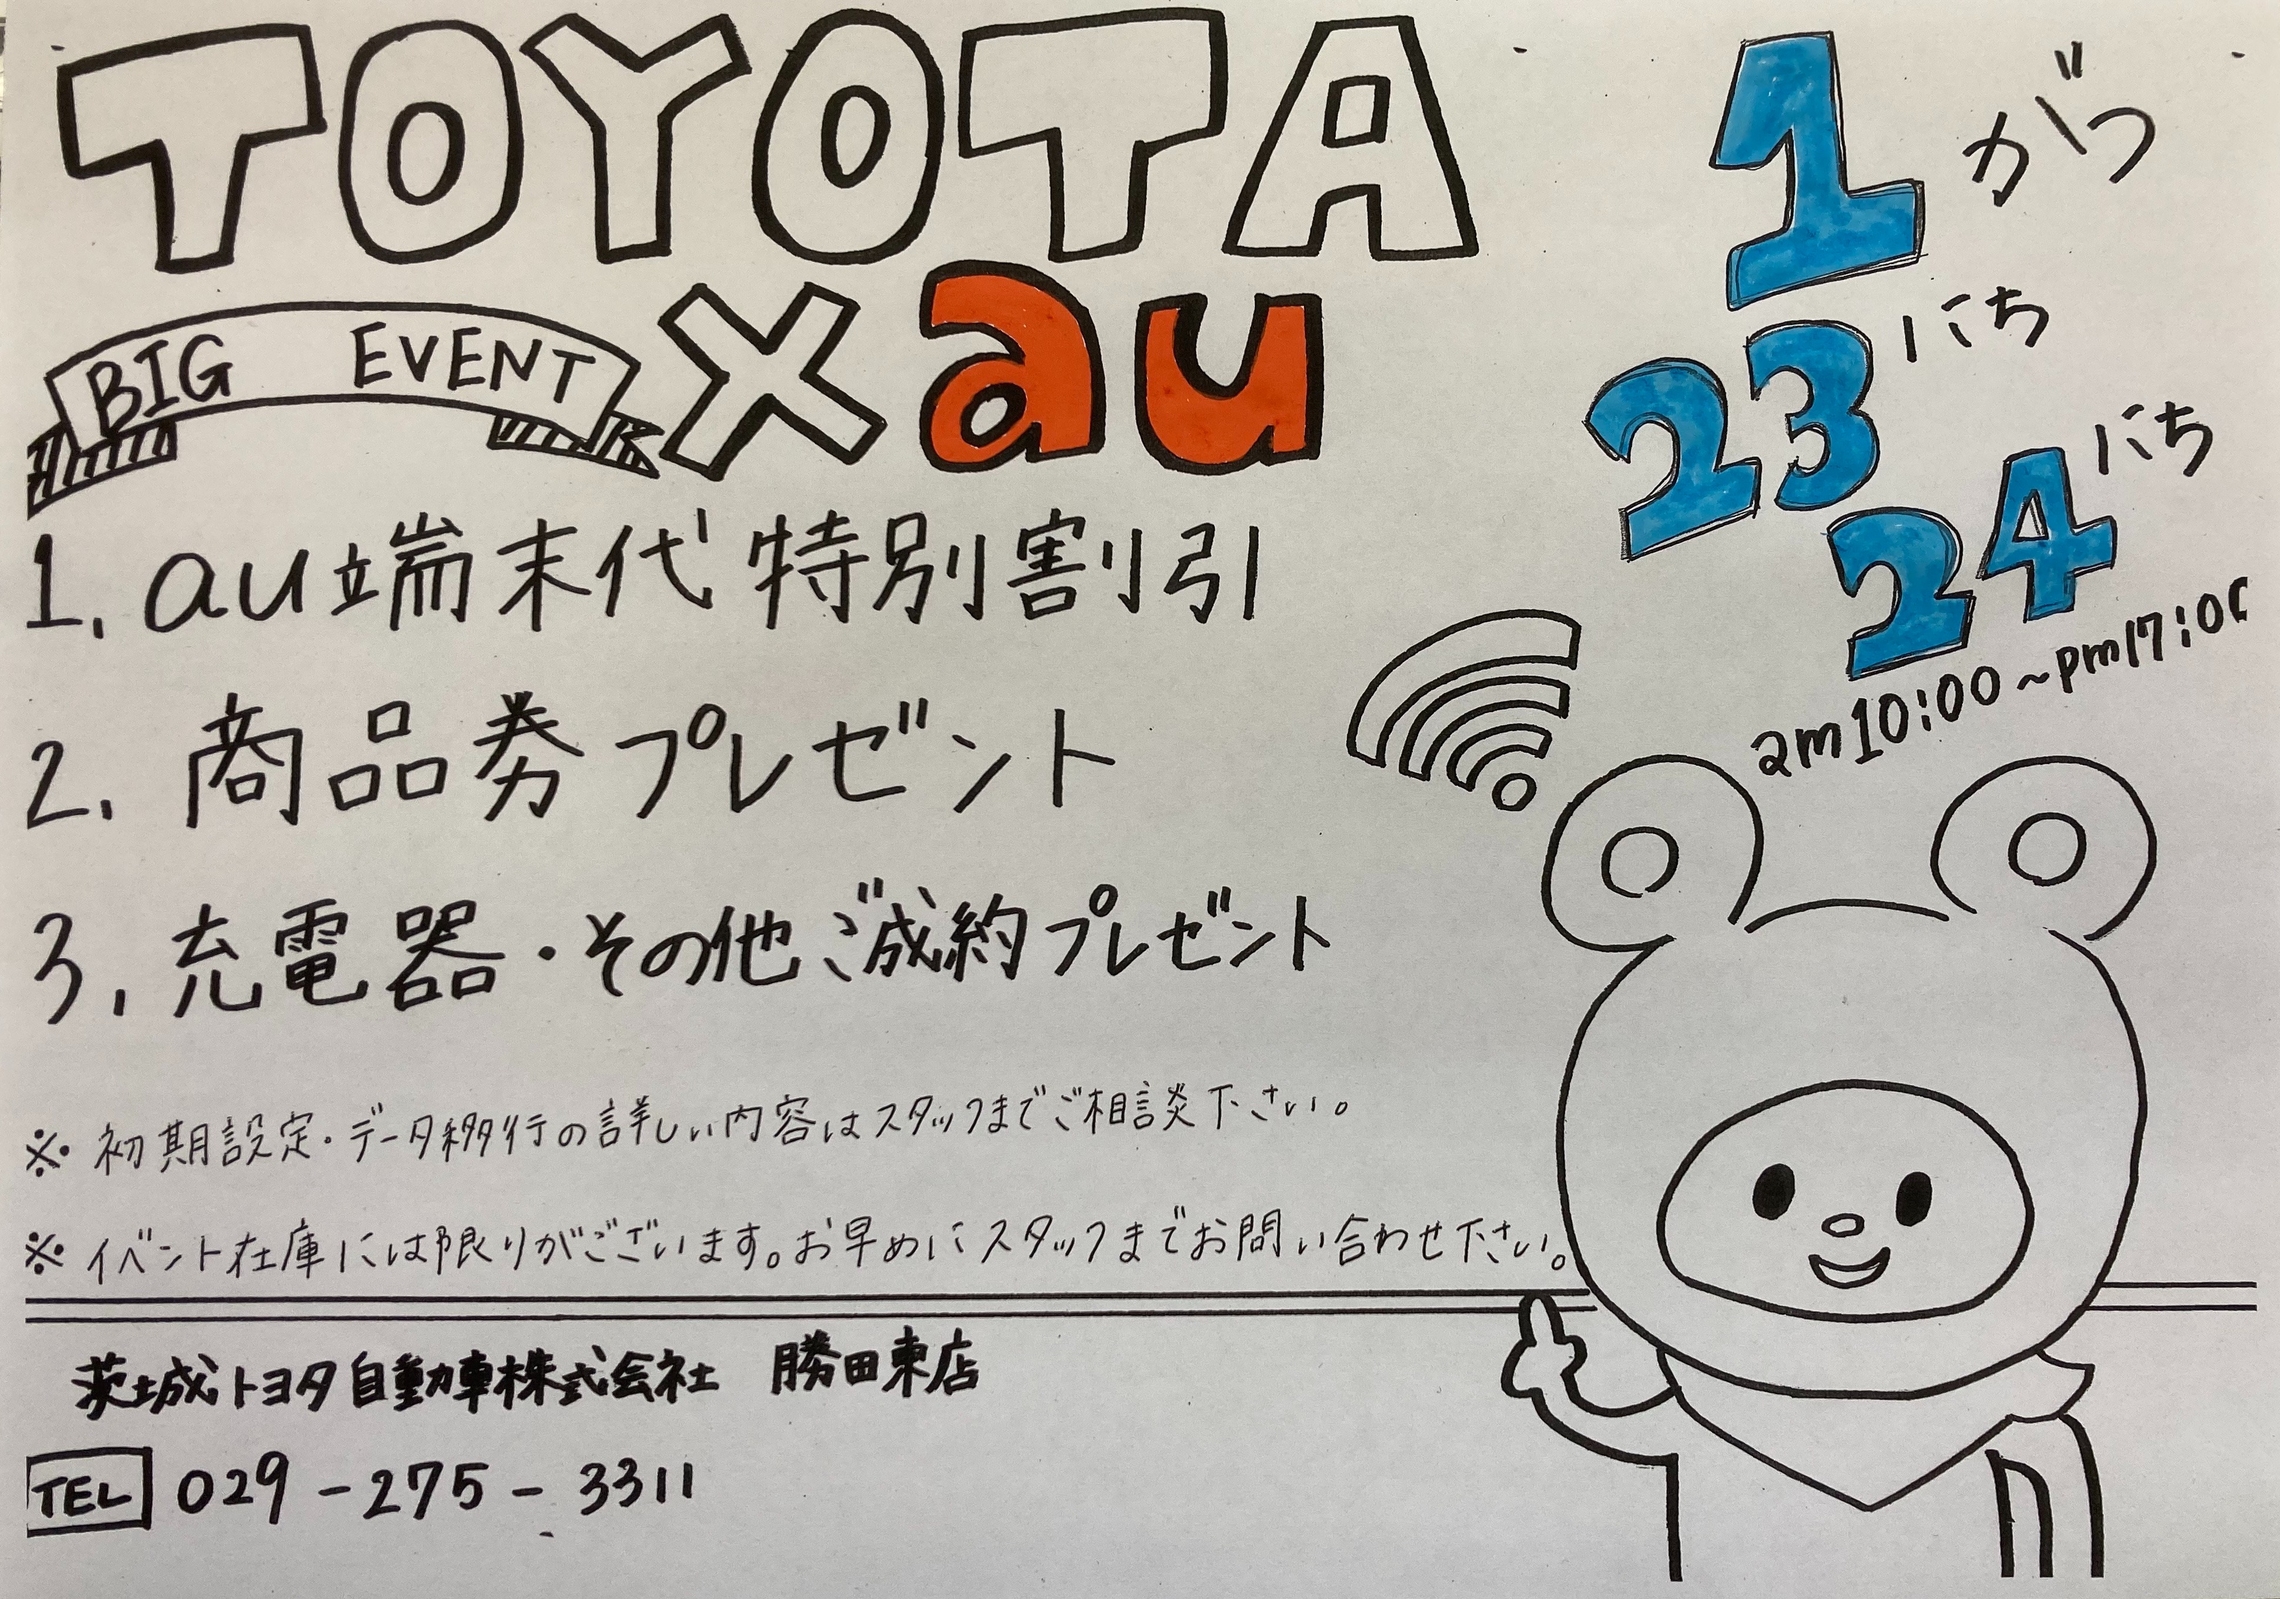 TOYOTA
BIG EVENT × au
1がつ
23にち
24にち
am10:00~pm17:00
1. au端末代特別割引
2. 商品券プレゼント
3. 充電器・その他ご成約プレゼント
※ 初期設定・データ移行の詳しい内容はスタッフまでご相談下さい。
※ イベント在庫には限りがございます。お早めにスタッフまでお問い合わせ下さい。
茨城トヨタ自動車株式会社 勝田東店
TEL 029-275-3311